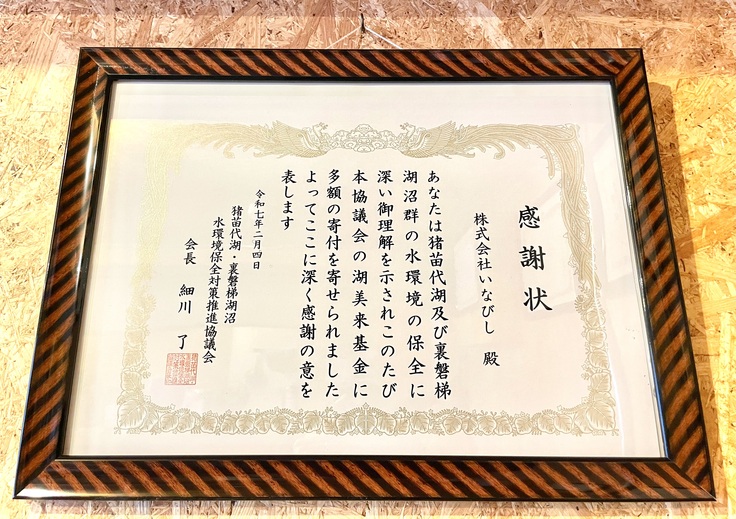 感謝状
株式会社いなびし 殿
あなたは猪苗代湖及び裏磐梯
湖沼群の水環境の保全に
深い御理解を示されこのたび
本協議会の湖美来基金に
多額の寄付を寄せられました
よってここに深く感謝の意を
表します
令和七年二月四日
猪苗代湖・裏磐梯湖沼
水環境保全対策推進協議会
会長 細川 了